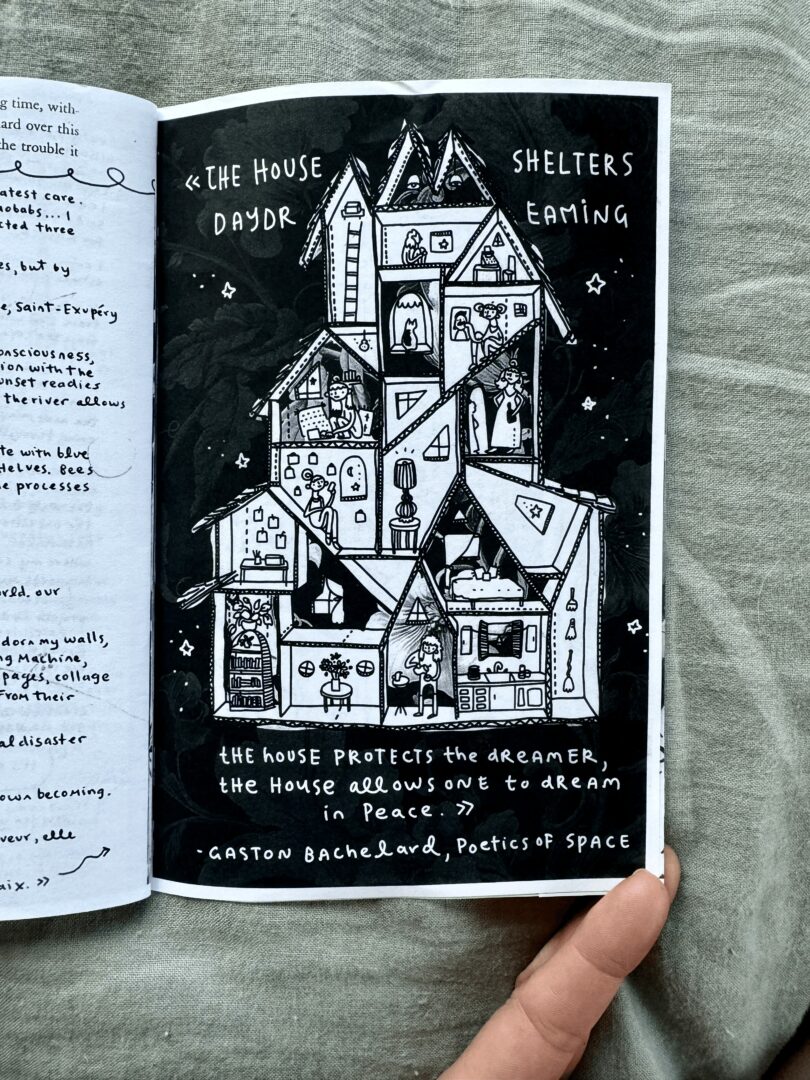 g time, with-
ard over this
the trouble it
atest care.
aobabs... I
cted three
es, but by
e, Saint-Exupéry
onsciousness,
ion with the
unset readies
the river allows
te with blue
helves. Bees
e processes
orld. our
dorn my walls,
ng Machine,
pages, collage
From their
al disaster
own becoming.
veur, elle
aix. »
« THE HOUSE SHELTERS
DAYDR EAMING
tHE house PROTECTS the dREAMER,
tHE HOUSE allOWS ONE to dREAM
in PEACE. »
-GASTON BACHElARd, PoEticS of SPACE